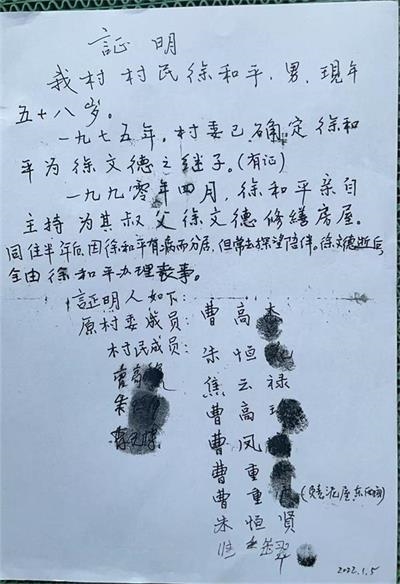 証明
我村村民徐和平,男,现年
五十八岁。
一九七五年,村委已确定徐和
平为徐文德之继子。(有证)
一九九零年四月,徐和平亲自
主持为其叔父徐文德修缮房屋。
同住半年后,因徐和平有病而分居,但常去探望陪伴。徐文德逝后,
全由徐和平办理丧事。
証明人如下:
原村委成员:曹高
村民成员:朱恒
焦云禄
曹高
曹凤
曹重
曹重
朱恒贤
2022.1.5